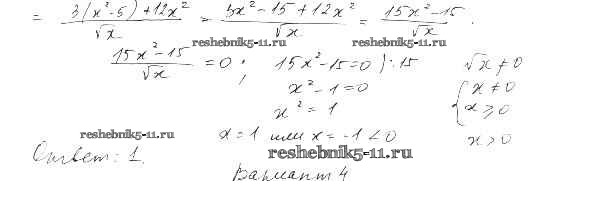 = 3(x²-5)+12x² / √x = 3x²-15+12x² / √x = 15x²-15 / √x .
reshebnik5-11.ru reshebnik5-11.ru
15x²-15 / √x = 0 ; 15x²-15=0 ) : 15 √x ≠ 0
x²-1=0 { x ≠ 0
x² = 1 x ≥ 0
reshebnik5-11.ru x=1 или x=-1 < 0 x > 0
Ответ: 1. reshebnik5-11.ru
Вариант 4